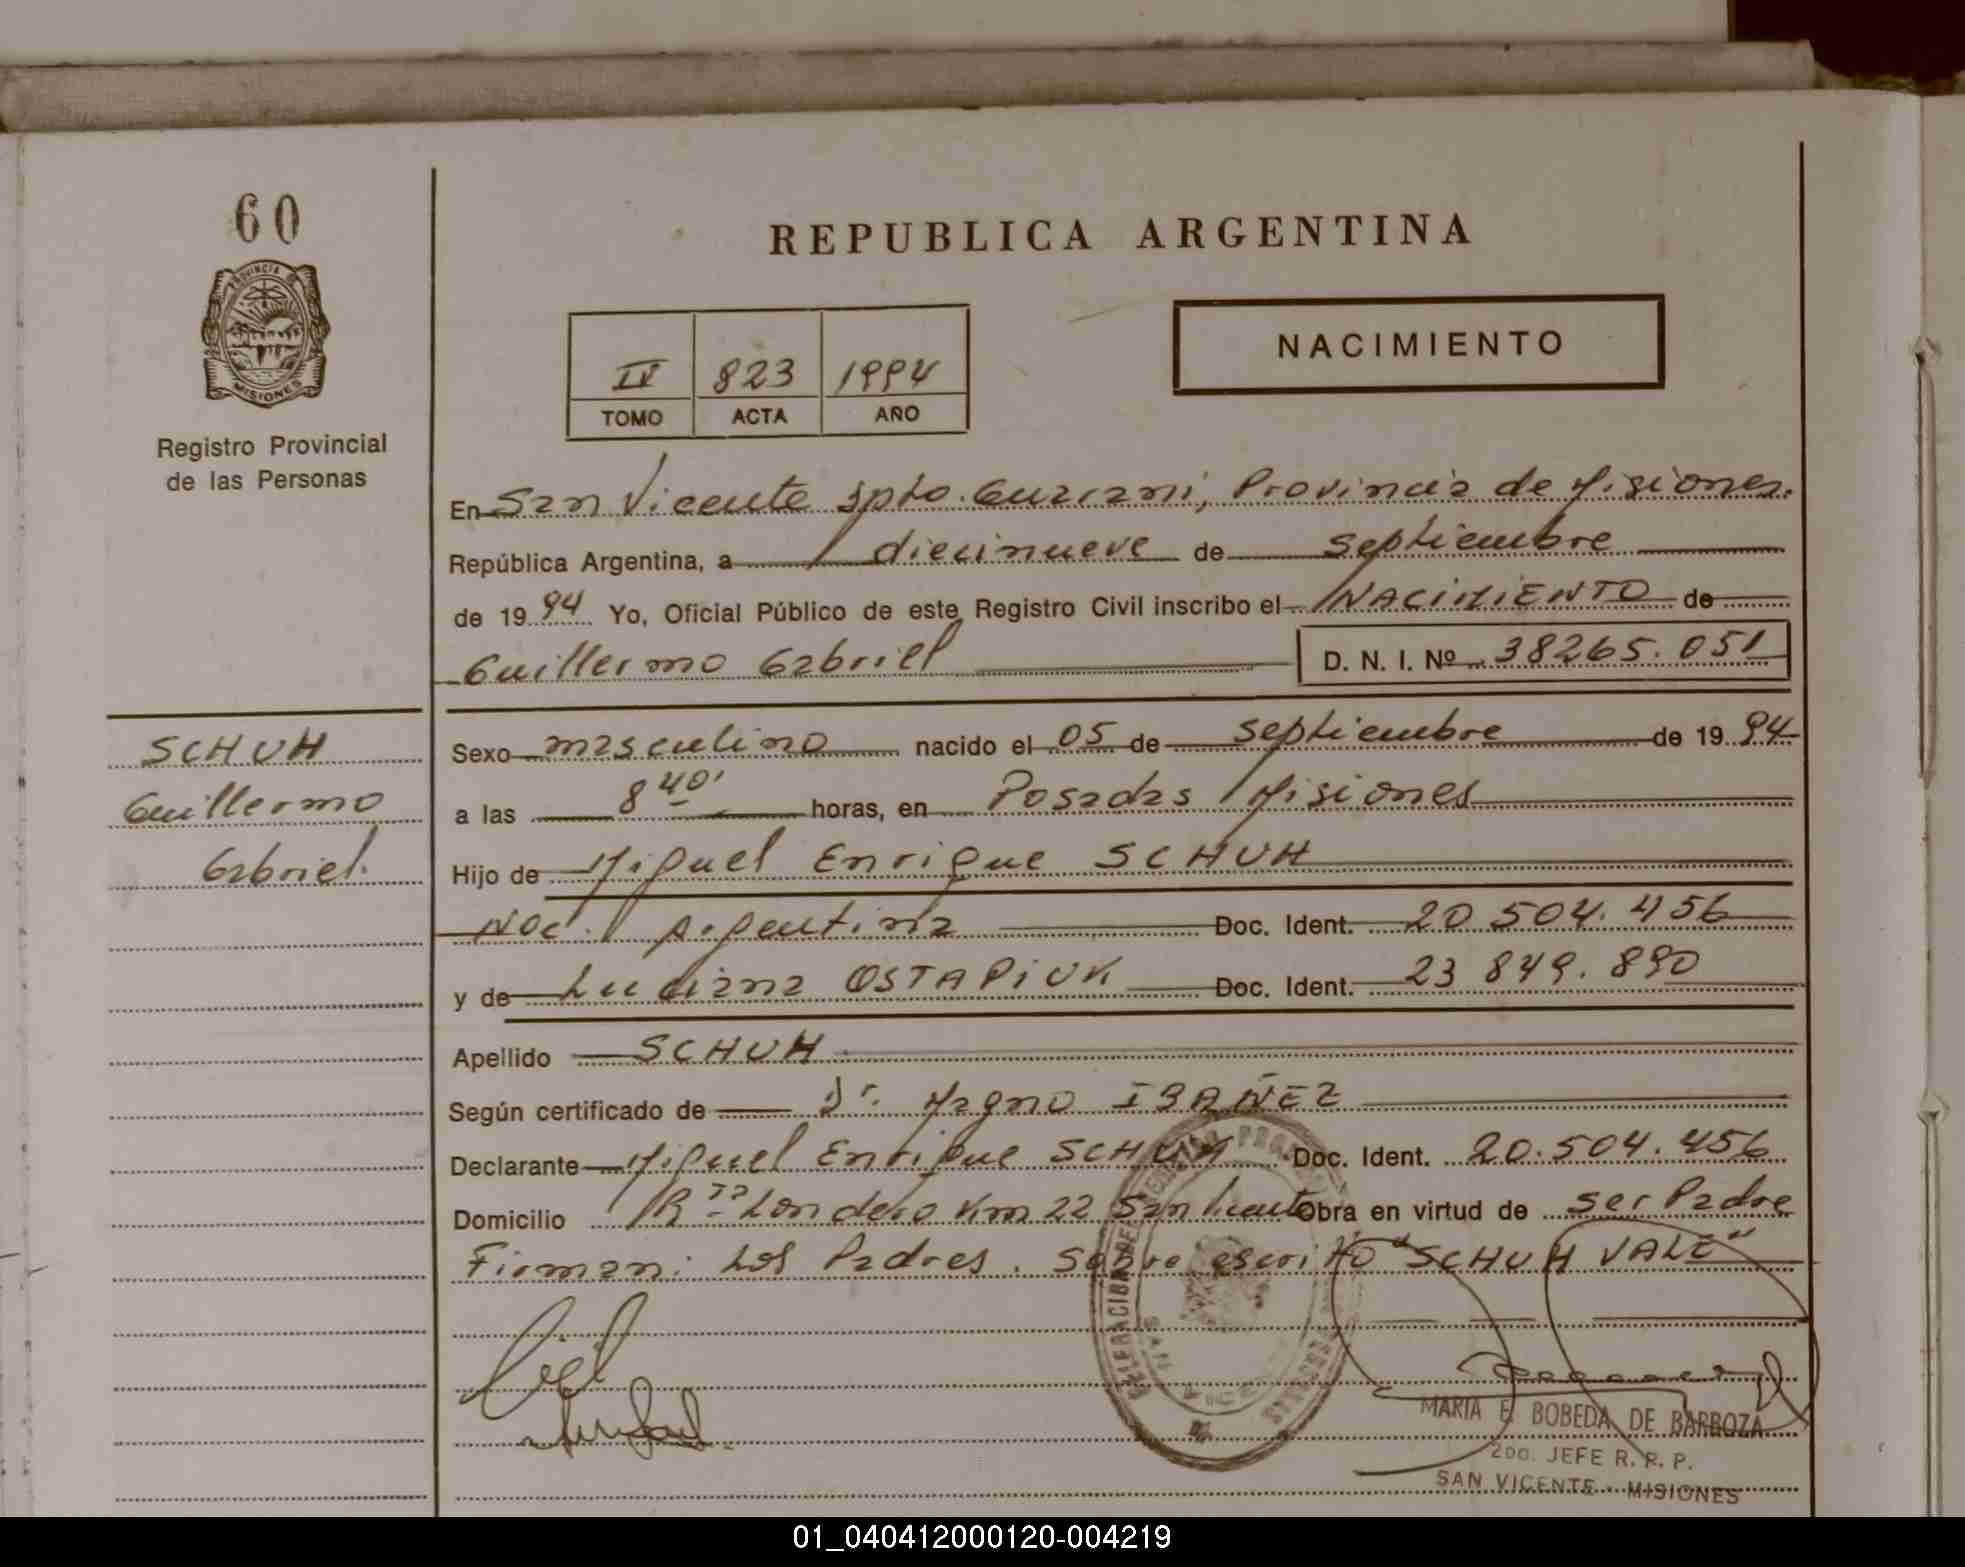 60
PROVINCIA DE
MISIONES
Registro Provincial
de las Personas
REPUBLICA ARGENTINA
IV 823 1994
TOMO ACTA AÑO
NACIMIENTO
En San Vicente Dpto. Guarani, Provincia de Misiones.
República Argentina, a diecinueve de septiembre
de 1994 Yo, Oficial Público de este Registro Civil inscribo el NACIMIENTO de
Guillermo Gabriel D. N. I. Nº 38265.051
SCHUH
Guillermo
Gabriel.
Sexo masculino nacido el 05 de septiembre de 1994
a las 8 40' horas, en Posadas Misiones
Hijo de Miguel Enrique SCHUH
Nac. Argentina Doc. Ident. 20 504. 456
y de Luciana OSTAPIUK Doc. Ident. 23 849. 890
Apellido SCHUH
Según certificado de Dr. Magno IBAÑEZ
Declarante Miguel Enrique SCHUH Doc. Ident. 20.504.456
Domicilio Londero Km 22 San Vicente Obra en virtud de ser Padre
Firman: Los Padres. Sobre escrito "SCHUH VALE"
MARIA E. BOBEDA DE BARBOZA
2DO. JEFE R. P. P.
SAN VICENTE - MISIONES
01_040412000120-004219